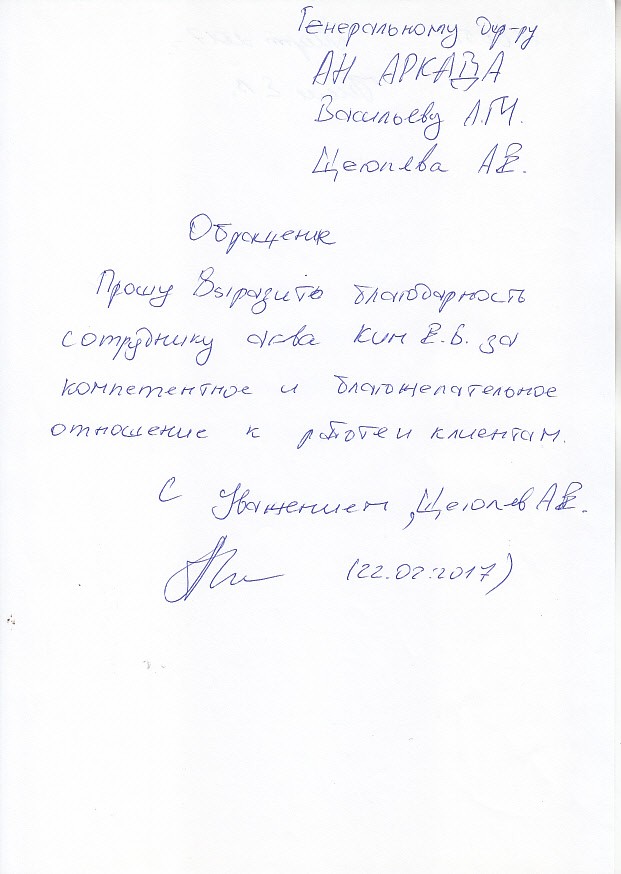 Генеральному Дир-ру
АН АРКАДА
Васильеву Л.М.
Обращение
Прошу Выразить благодарность
сотруднику Кин Е.Б. за
компетентное и благожелательное
отношение к работе и клиентам.
С Уважением,
(22.02.2017)